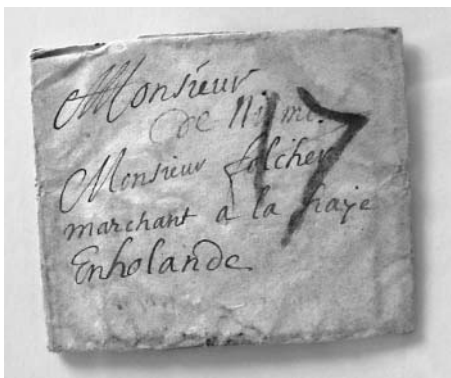 Monsieur
de Nisme
Monsieur folcher
marchant a la haye
Enholande
17